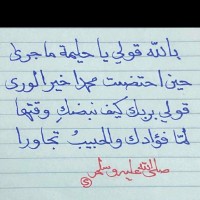 بالله قولي يا حليمة ما جرى
حين احتضنت محمدا خير الورى
قولي بربك كيف نبضكِ وقتها
لمّا فؤادك والحبيبُ تجاورا
صلى الله عليه وسلم